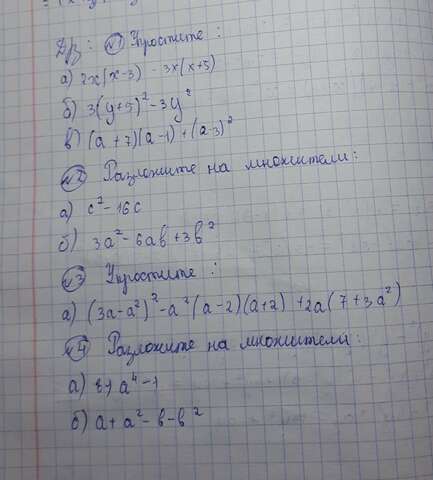 Д/з: №1 Упростите:
а) 2x(x-3) - 3x(x+5)
б) 3(y+5)² - 3y²
в) (a+7)(a-1) + (a-3)²
№2 Разложите на множители:
а) c² - 16c
б) 3a² - 6ab + 3b²
№3 Упростите:
а) (3a-a²)² - a²(a-2)(a+2) + 2a(7+3a²)
№4 Разложите на множители:
а) a⁴ - 1
б) a + a² - b - b²